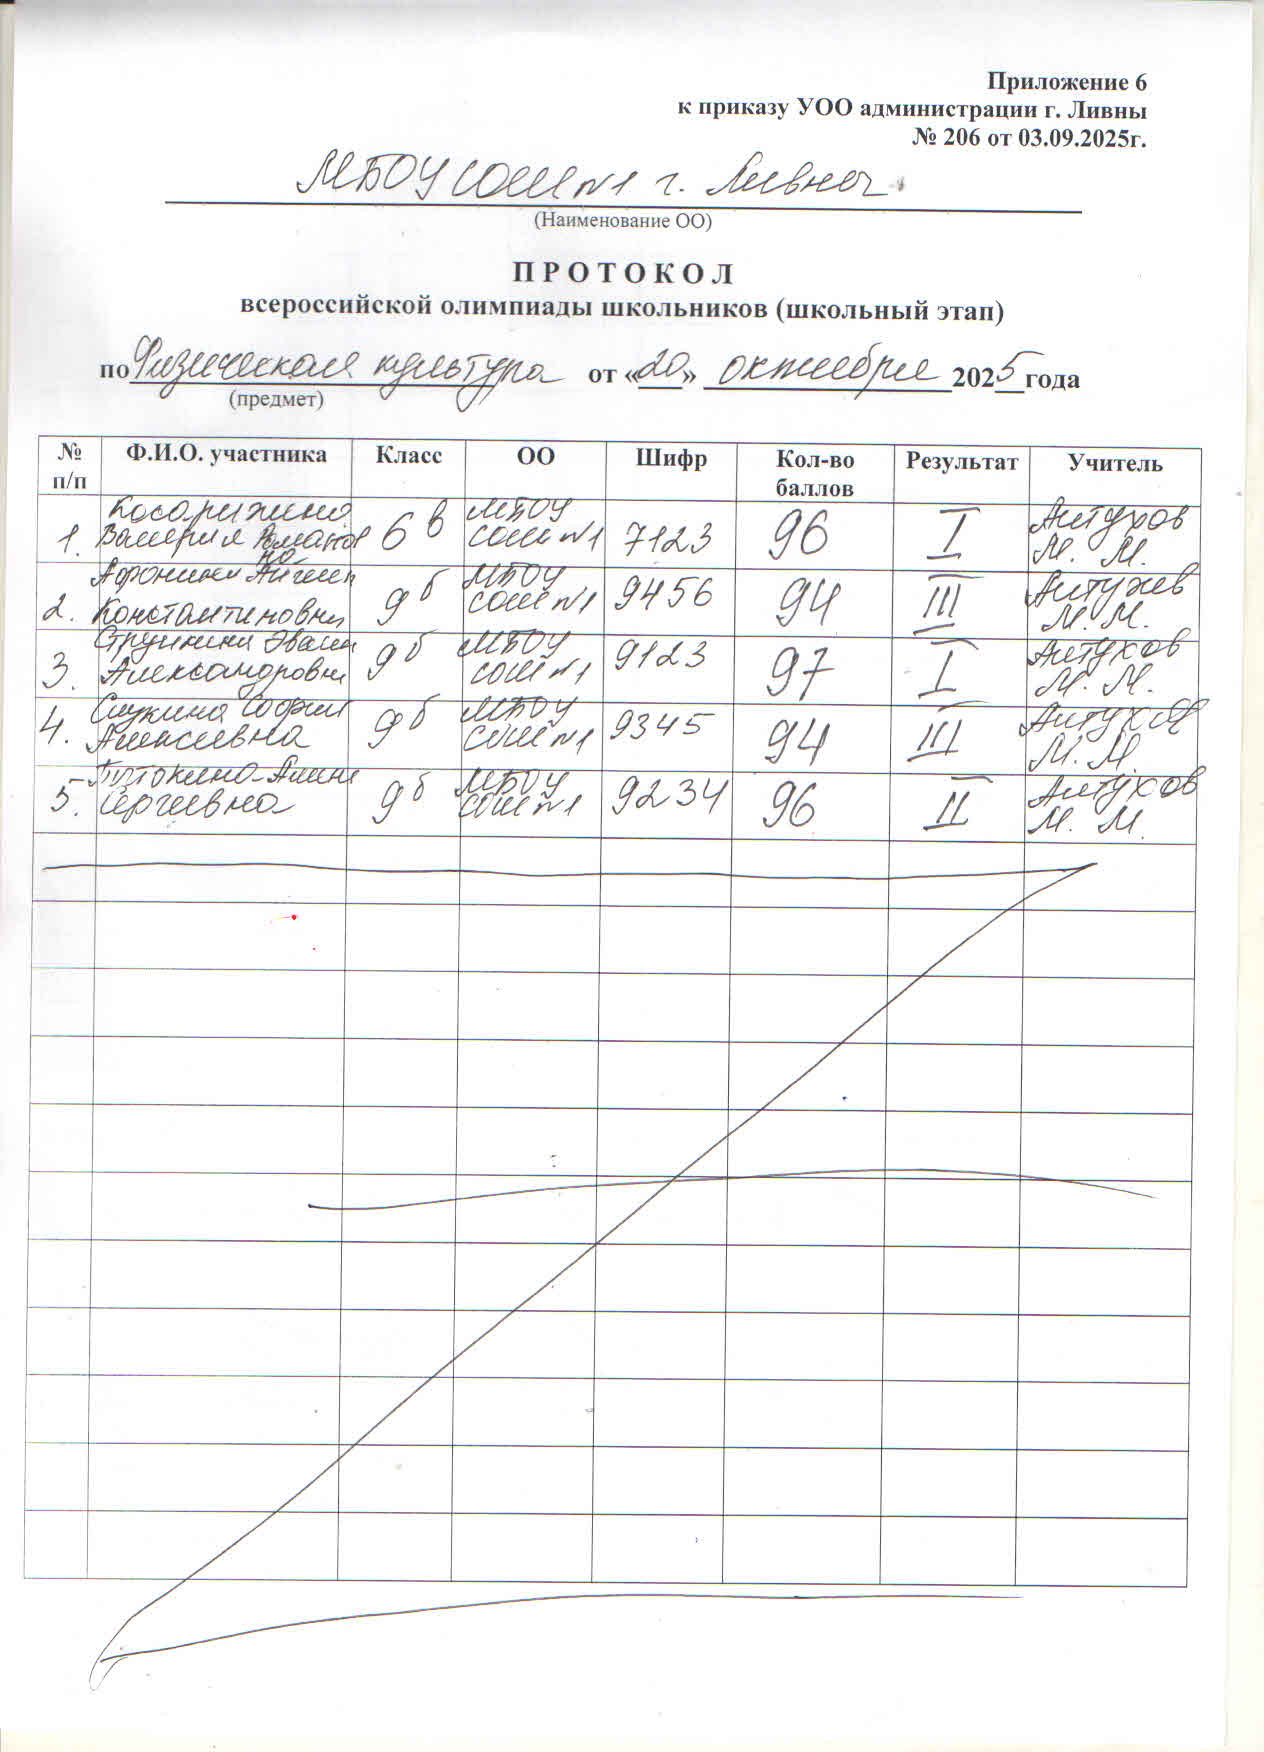 Приложение 6
к приказу УОО администрации г. Ливны
№ 206 от 03.09.2025г.
МБОУ СОШ №1 г. Ливны
(Наименование ОО)
ПРОТОКОЛ
всероссийской олимпиады школьников (школьный этап)
по Физическая культура от «20» октября 2025 года
(предмет)
№ п/п Ф.И.О. участника Класс ОО Шифр Кол-во баллов Результат Учитель
1. Валерия Романовна 6 в МБОУ СОШ №1 7123 96 I Антухов М. М.
2. Константиновна 9 б МБОУ СОШ №1 9456 94 III Антухов М. М.
3. Александровна 9 б МБОУ СОШ №1 9123 97 I Антухов М. М.
4. София Алексеевна 9 б МБОУ СОШ №1 9345 94 III Антухов М. М.
5. Алина Сергеевна 9 б МБОУ СОШ №1 9234 96 II Антухов М. М.